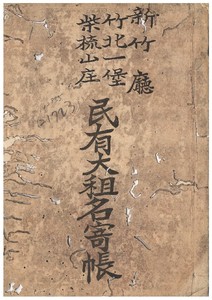 新竹廳
竹北一堡
柴梳山庄
民有大租名寄帳